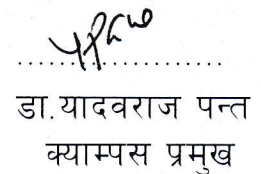 ....................
डा.यादवराज पन्त
क्याम्पस प्रमुख